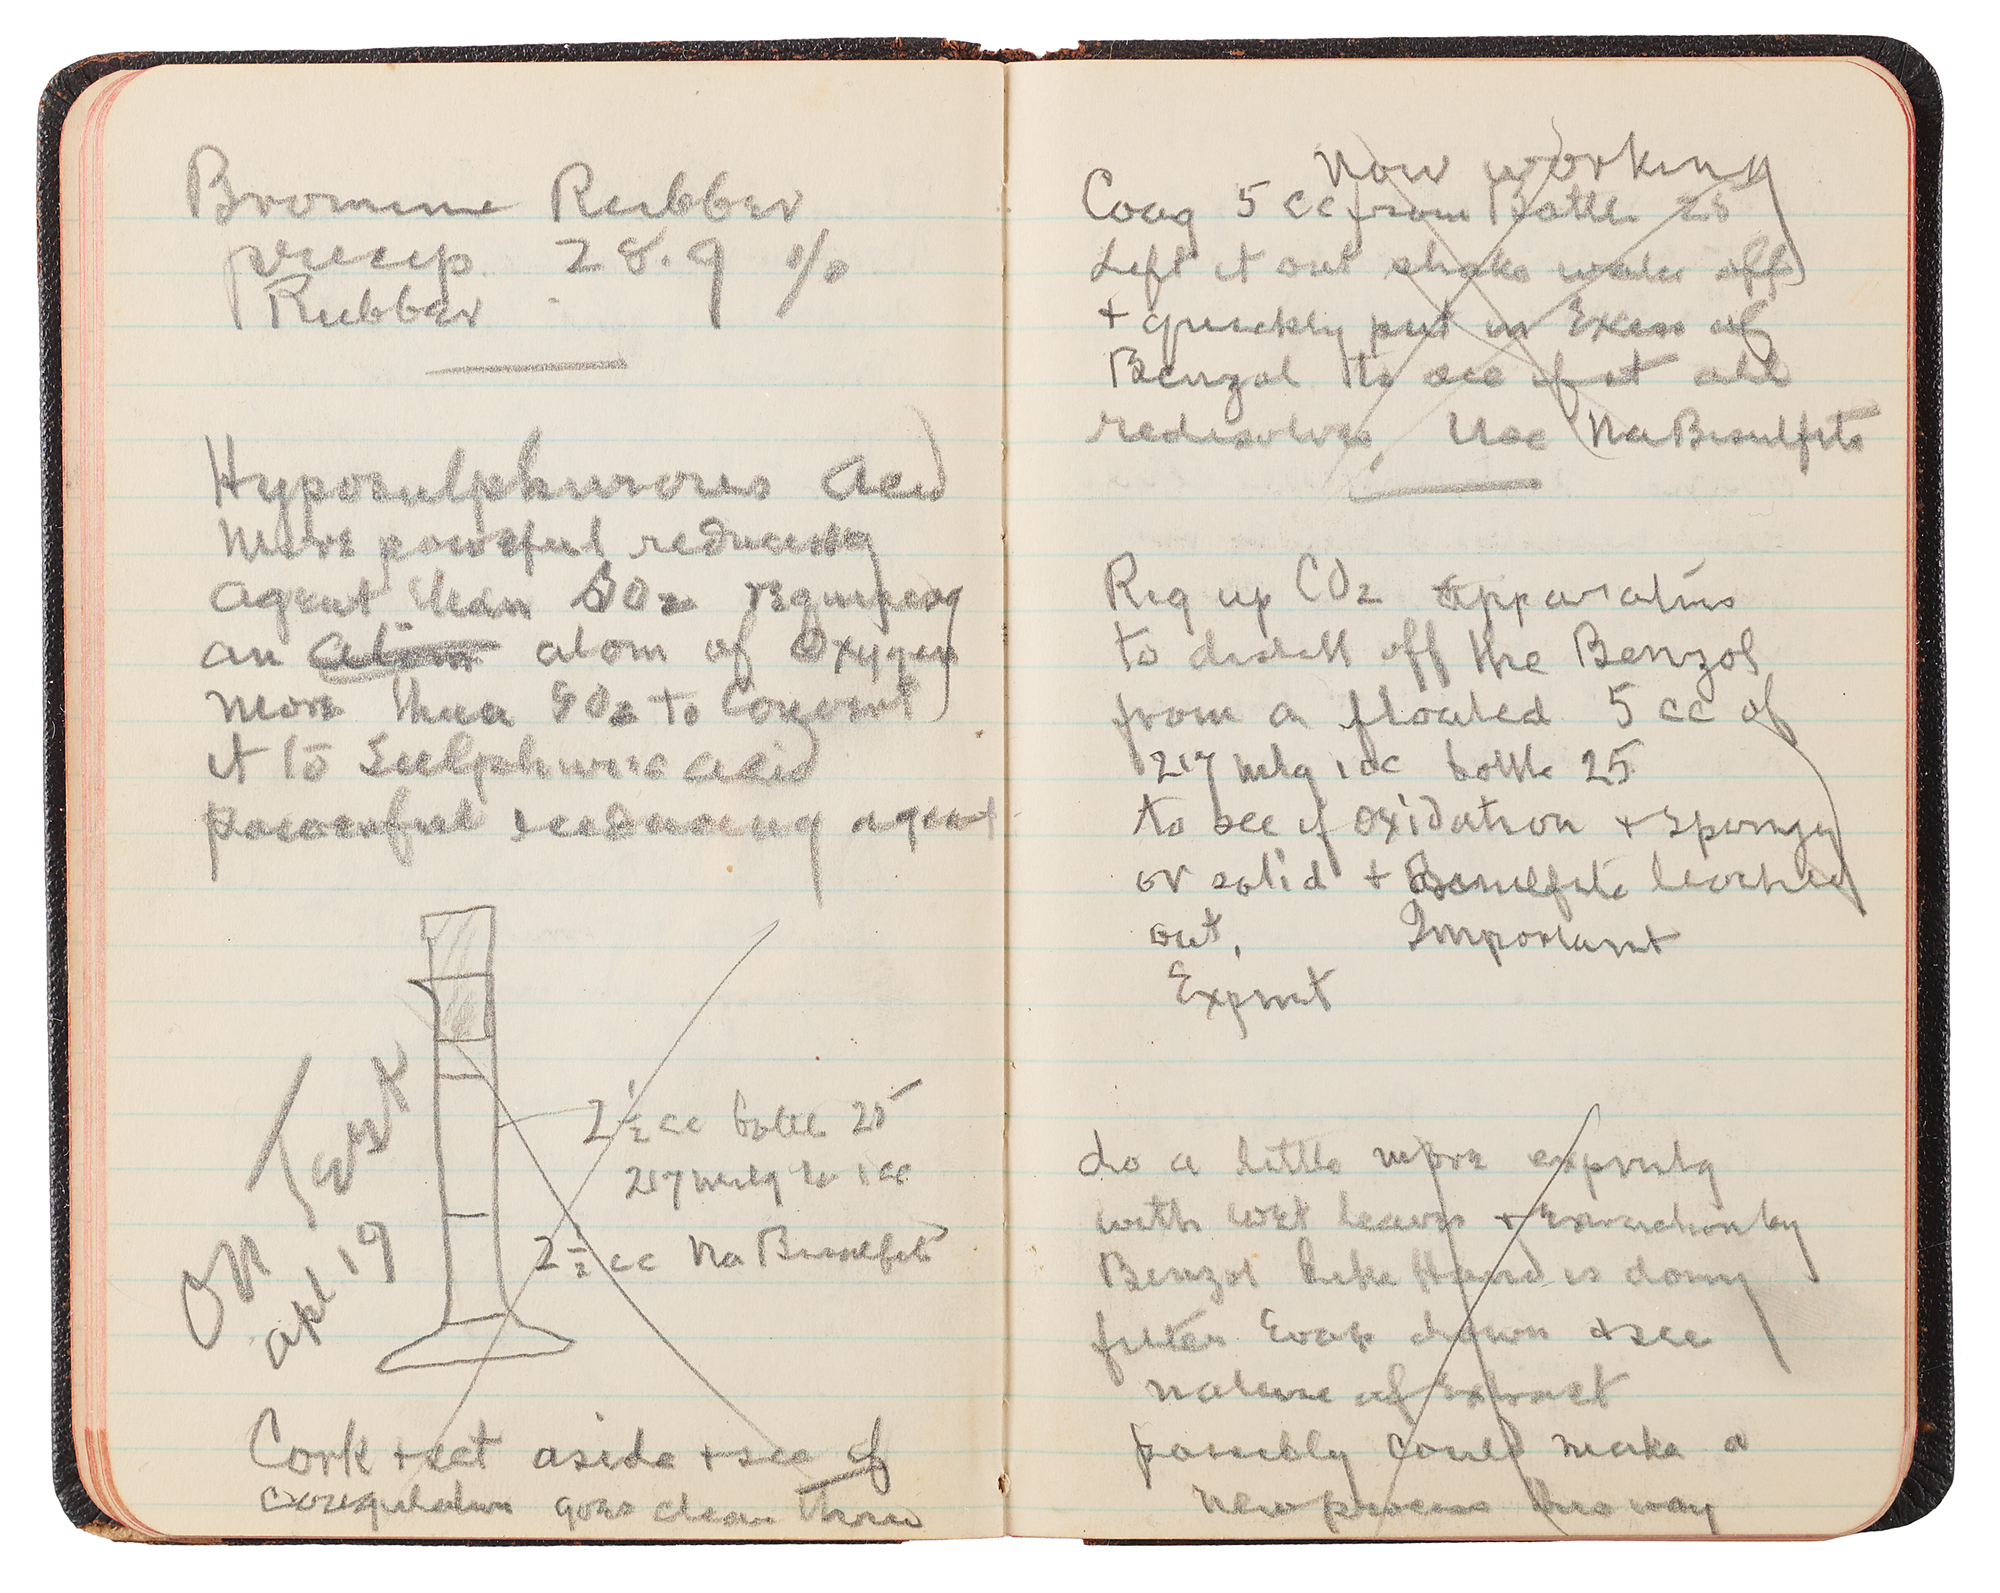 Bromine Rubber
precip. 28.9 %
Rubber
Hyposulphurous Acid
More powerful reducing
agent than SO2 requiring
an atom of Oxygen
more than SO2 to Convert
it to Sulphuric acid
powerful reducing agent
2 1/2 cc bottle 25
217 milg to 1 cc
2 1/2 cc Na Bisulfite
On
apl 19
Cork + set aside + see if
coagulation goes clear
Now working
Coag 5 cc from bottle 25
Left it out shake water off
+ quickly put in Excess of
Benzol to see if it all
redisolves, Use Na Bisulfite
Rig up CO2 apparatus
to distill off the Benzol
from a floated 5 cc of
217 mlg 1 cc bottle 25
to see if oxidation + spongy
or solid + Bisulfite leached
out, Important
Expmt
do a little more expmtg
with wet leaves + Extraction by
Benzol like Hand is doing
filter Evap down + see
nature of Extract
possibly could make a
new process this way